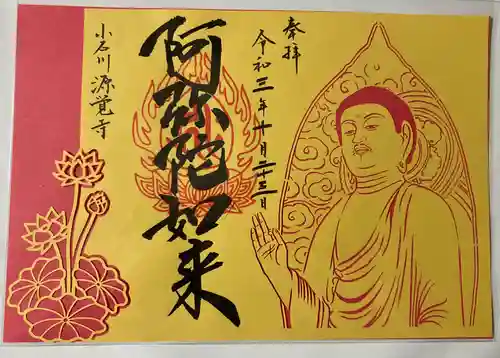 奉拝
令和三年十月二十三日
阿弥陀如来
小石川 源覚寺